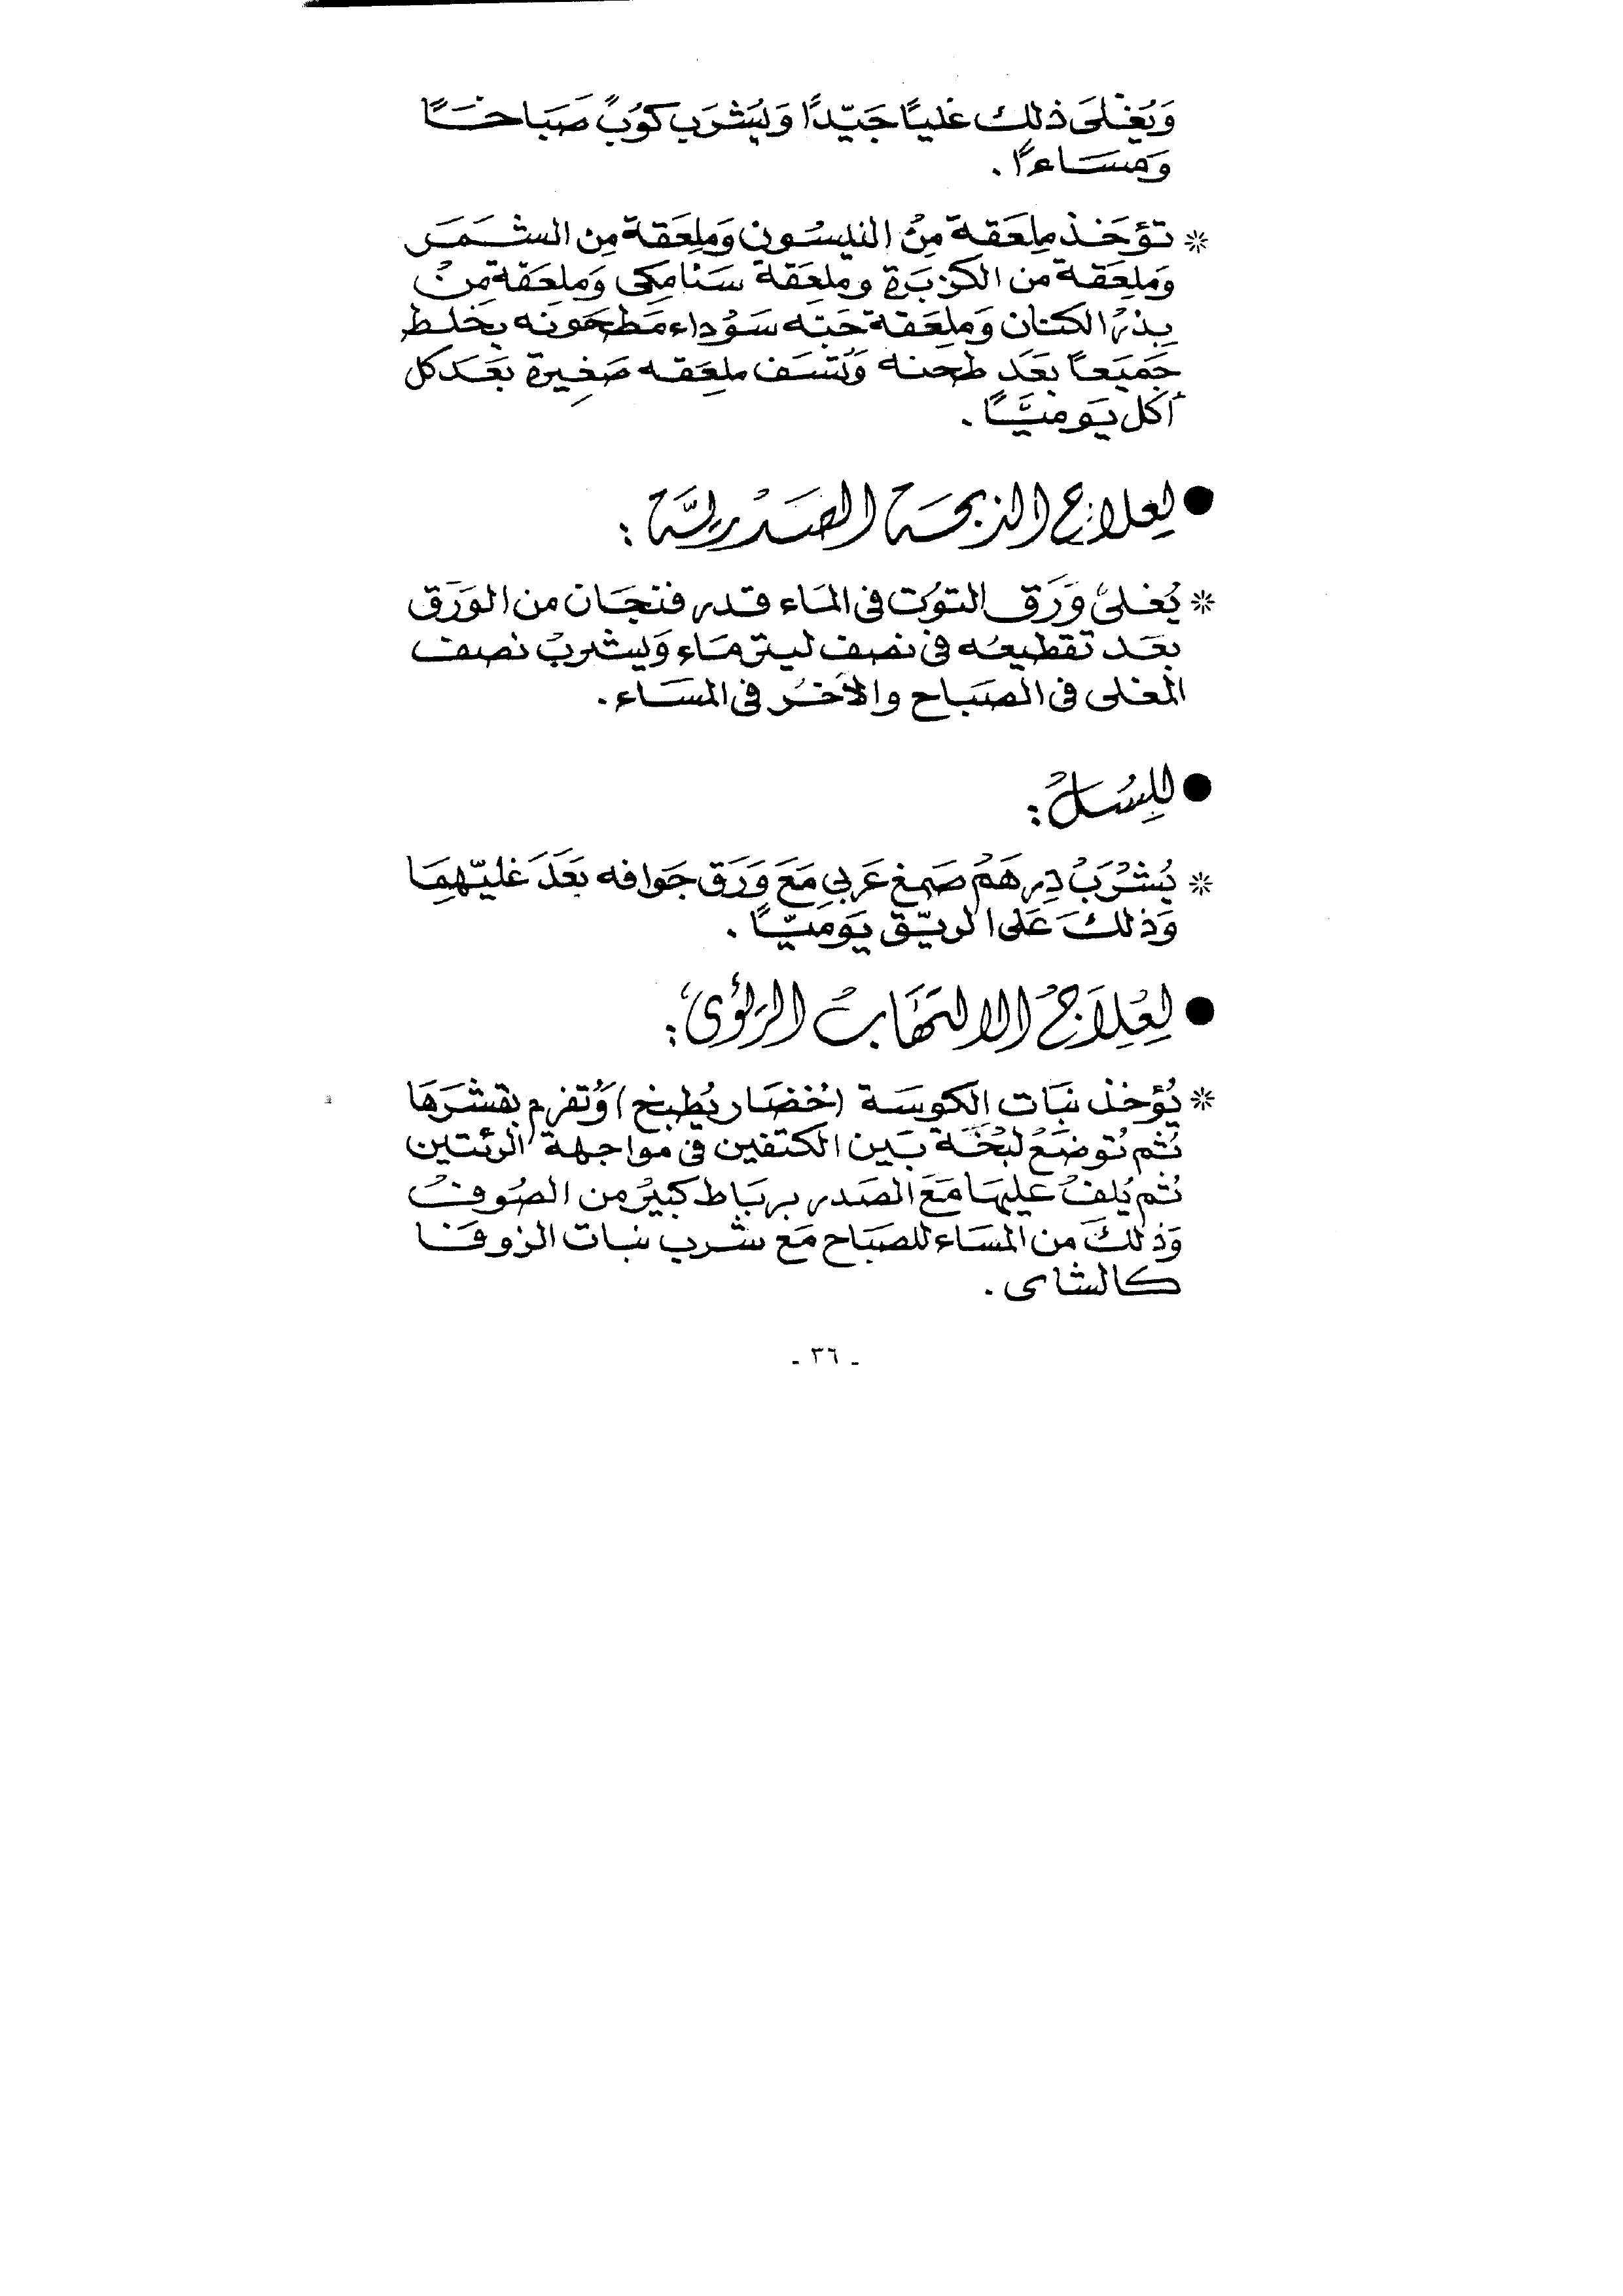 وَيُغْلَى ذلك غليًا جَيّدًا وَيُشْرَب كوُبٌ صَبَاحًا
وَمسَاءًا .
* تؤخَذ ملعَقة مِنُ الينسُون وَملِعَقة مِن الشمَر
وَملعَقة من الكزبَرة وملعَقة سَنامكى وَملعَقة منْ
بذرُ الكتان وَملعَقة حَبّه سَوْداء مَطحَونه يخلط
جَميَعاً بعَد طحَنه وَتسَف ملعَقه صَغِيرة بعَد كل
أكل يَوميًّا .
● لعِلاج الذبحة الصَدْريّة :
* يُغلى وَرَق التوُت فى الماء قدر فنجَان من الوَرَق
بعَد تقطيعُه فى نصف ليتر مَاء وَيشربُ نصف
المغلى فى الصبَاح والأخرُ فى المسَاء .
● للِسُل :
* يُشْرَبُ دِرهَمُ صَمغ عَربي مَعَ وَرَق جَوافه بَعَدَ غليّهمَا
وَذلكَ عَلى الريّق يَوَميّاً .
● لعِلاَجُ الالتهَابُ الرئوىَ :
* يُؤخذ نبَات الكوسَة (خُضَار يُطبخ) وَتُفرم بقشرَهَا
ثم تُوضَعُ لبُخَة بَين الكتفين فى مواجهة الرئتين
ثم يُلفُ عليهَا مَعَ الصَدر بربَاط كبيرُ من الصُوف
وَذلكَ من المسَاء للصبَاح مَع شرب نبات الزوفا
كالشاى .
- ٣٦ -